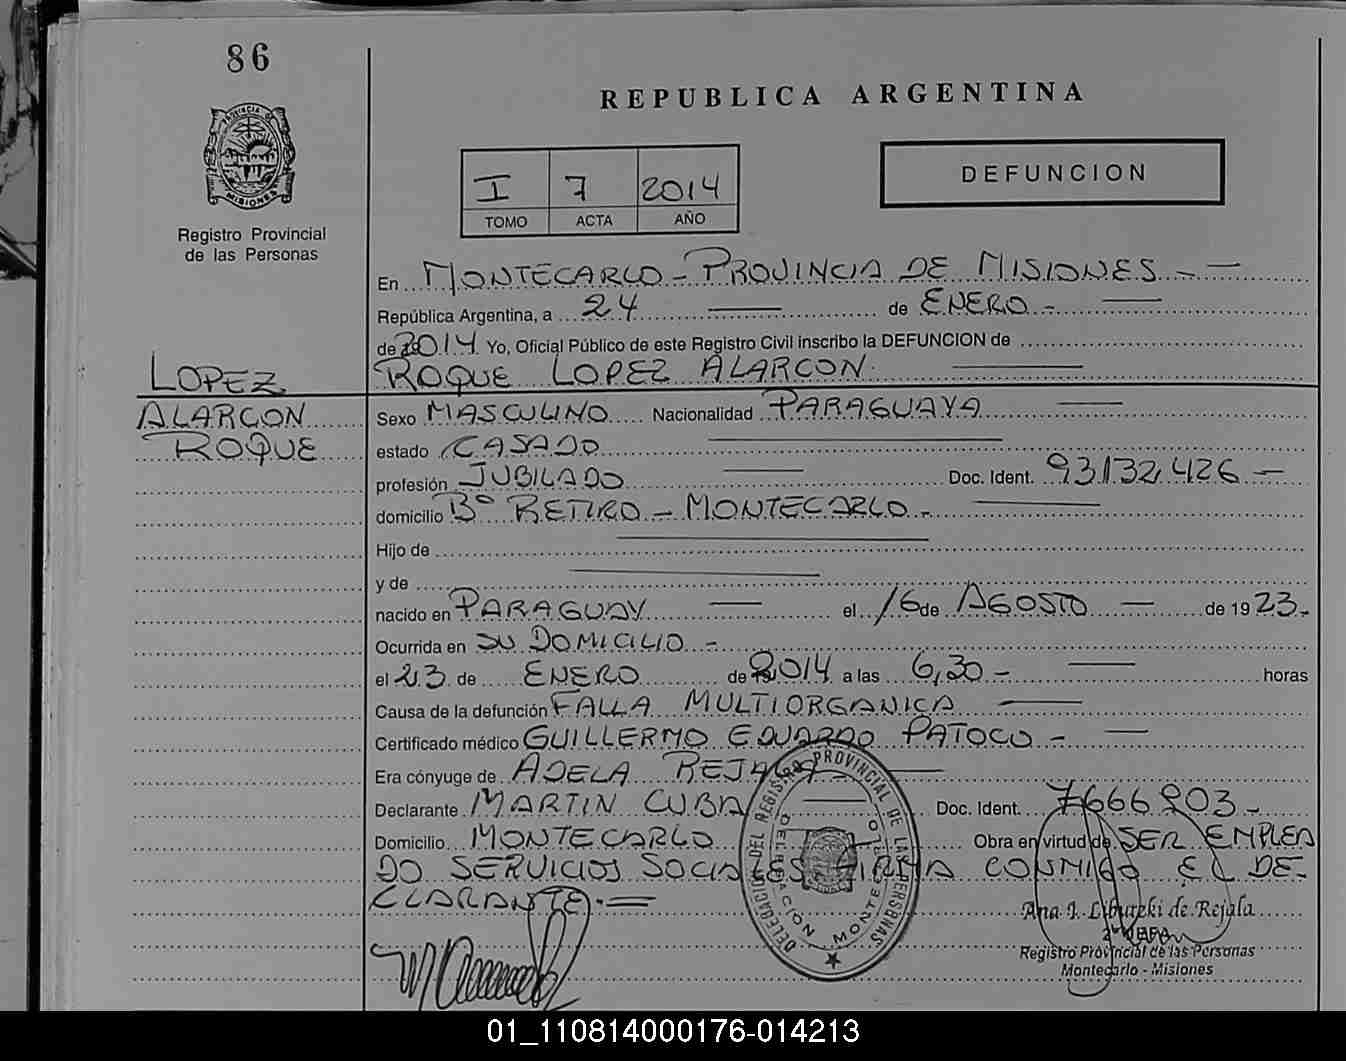 86
REPUBLICA ARGENTINA
PROVINCIA DE MISIONES
Registro Provincial
de las Personas
I 7 2014
TOMO ACTA AÑO
DEFUNCION
En MONTECARLO - PROVINCIA DE MISIONES -
República Argentina, a 24 de ENERO -
de 2014 Yo, Oficial Público de este Registro Civil inscribo la DEFUNCION de
ROQUE LOPEZ ALARCON
LOPEZ
ALARCON
ROQUE
Sexo MASCULINO Nacionalidad PARAGUAYA
estado CASADO
profesión JUBILADO Doc. Ident. 93.132.426 -
domicilio Bº RETIRO - MONTECARLO -
Hijo de
y de
nacido en PARAGUAY el 16 de AGOSTO de 1923-
Ocurrida en SU DOMICILIO -
el 23 de ENERO de 2014 a las 6,30 - horas
Causa de la defunción FALLA MULTIORGANICA
Certificado médico GUILLERMO EDUARDO PATOCO -
Era cónyuge de ADELA
Declarante MARTIN CUBA Doc. Ident. 7666903 -
Domicilio MONTECARLO Obra en virtud de SER EMPLEA
DO SERVICIOS SOCIALES FIRMA CONMIGO EL DE-
CLARANTE.=
DELEGACION DEL REGISTRO PROVINCIAL DE LAS PERSONAS
DELEGACIÓN MONTECARLO
Ana I. Liburzki de Rejala
2º JEFA
Registro Provincial de las Personas
Montecarlo - Misiones
01_110814000176-014213